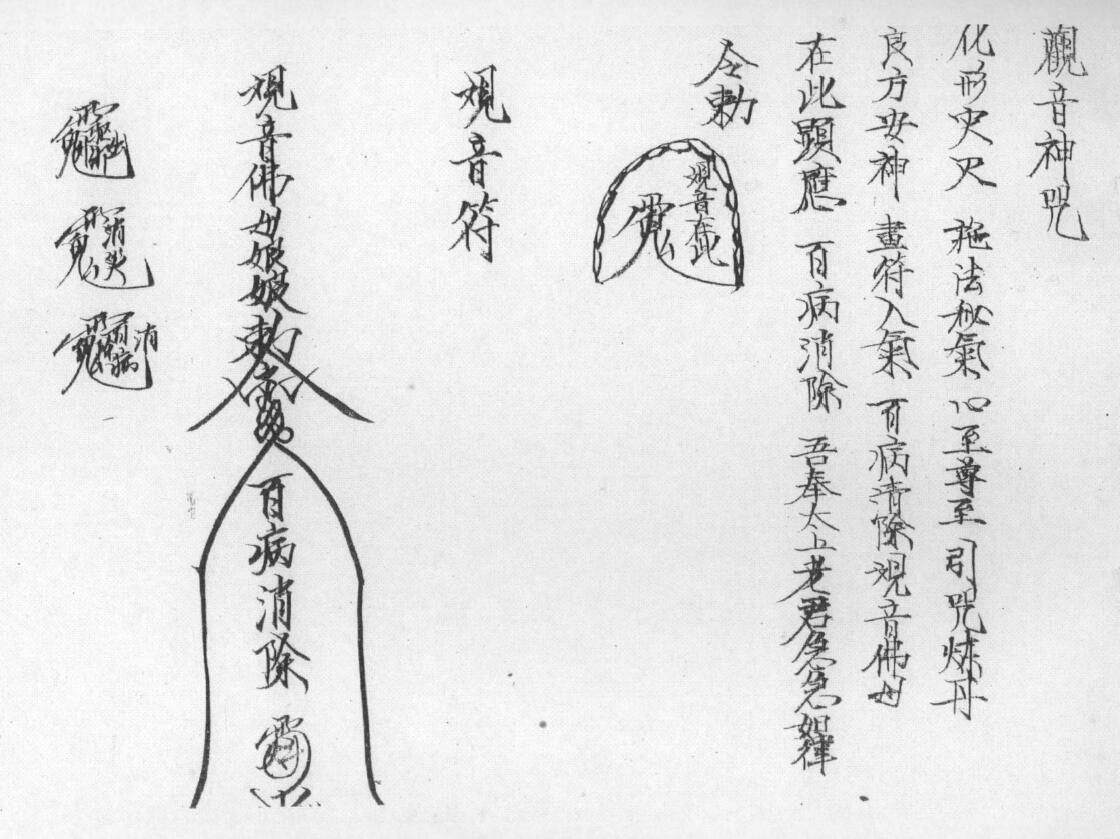 觀音神咒
化形灾灭 施法秘氣 心至尊至 引咒炼丹
良方安神 畫符入氣 百病清除观音佛母
在此顕應 百病消除 吾奉太上老君急急如律
令勅
观音在此
观音符
观音佛母娘娘勅令
百病消除
消灾
百病消